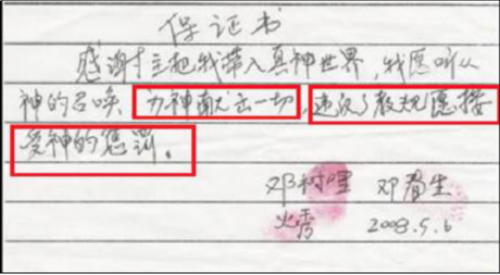 保证书
感谢才主把我带入真神世界,我愿听从
神的召唤 为神献出一切,违反了教规愿接
受神的惩罚。
邓树
邓春生
火秀
2008.5.6